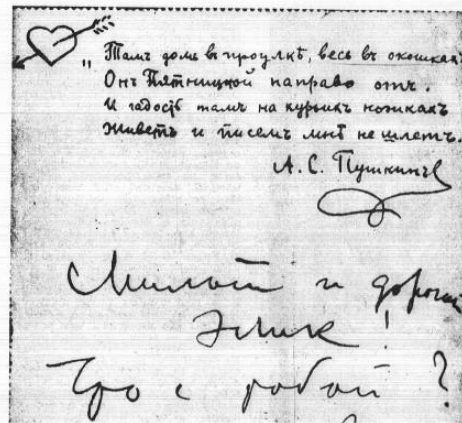 „Тамъ домъ въ проулкѣ, весь въ окошкахъ
Онъ Пятницкой направо отъ.
И гадость тамъ на курьихъ ножкахъ
Живетъ и писемъ мнѣ не шлетъ.
А. С. Пушкинъ
Милый и дорогой
Эмик!
Что с тобой?